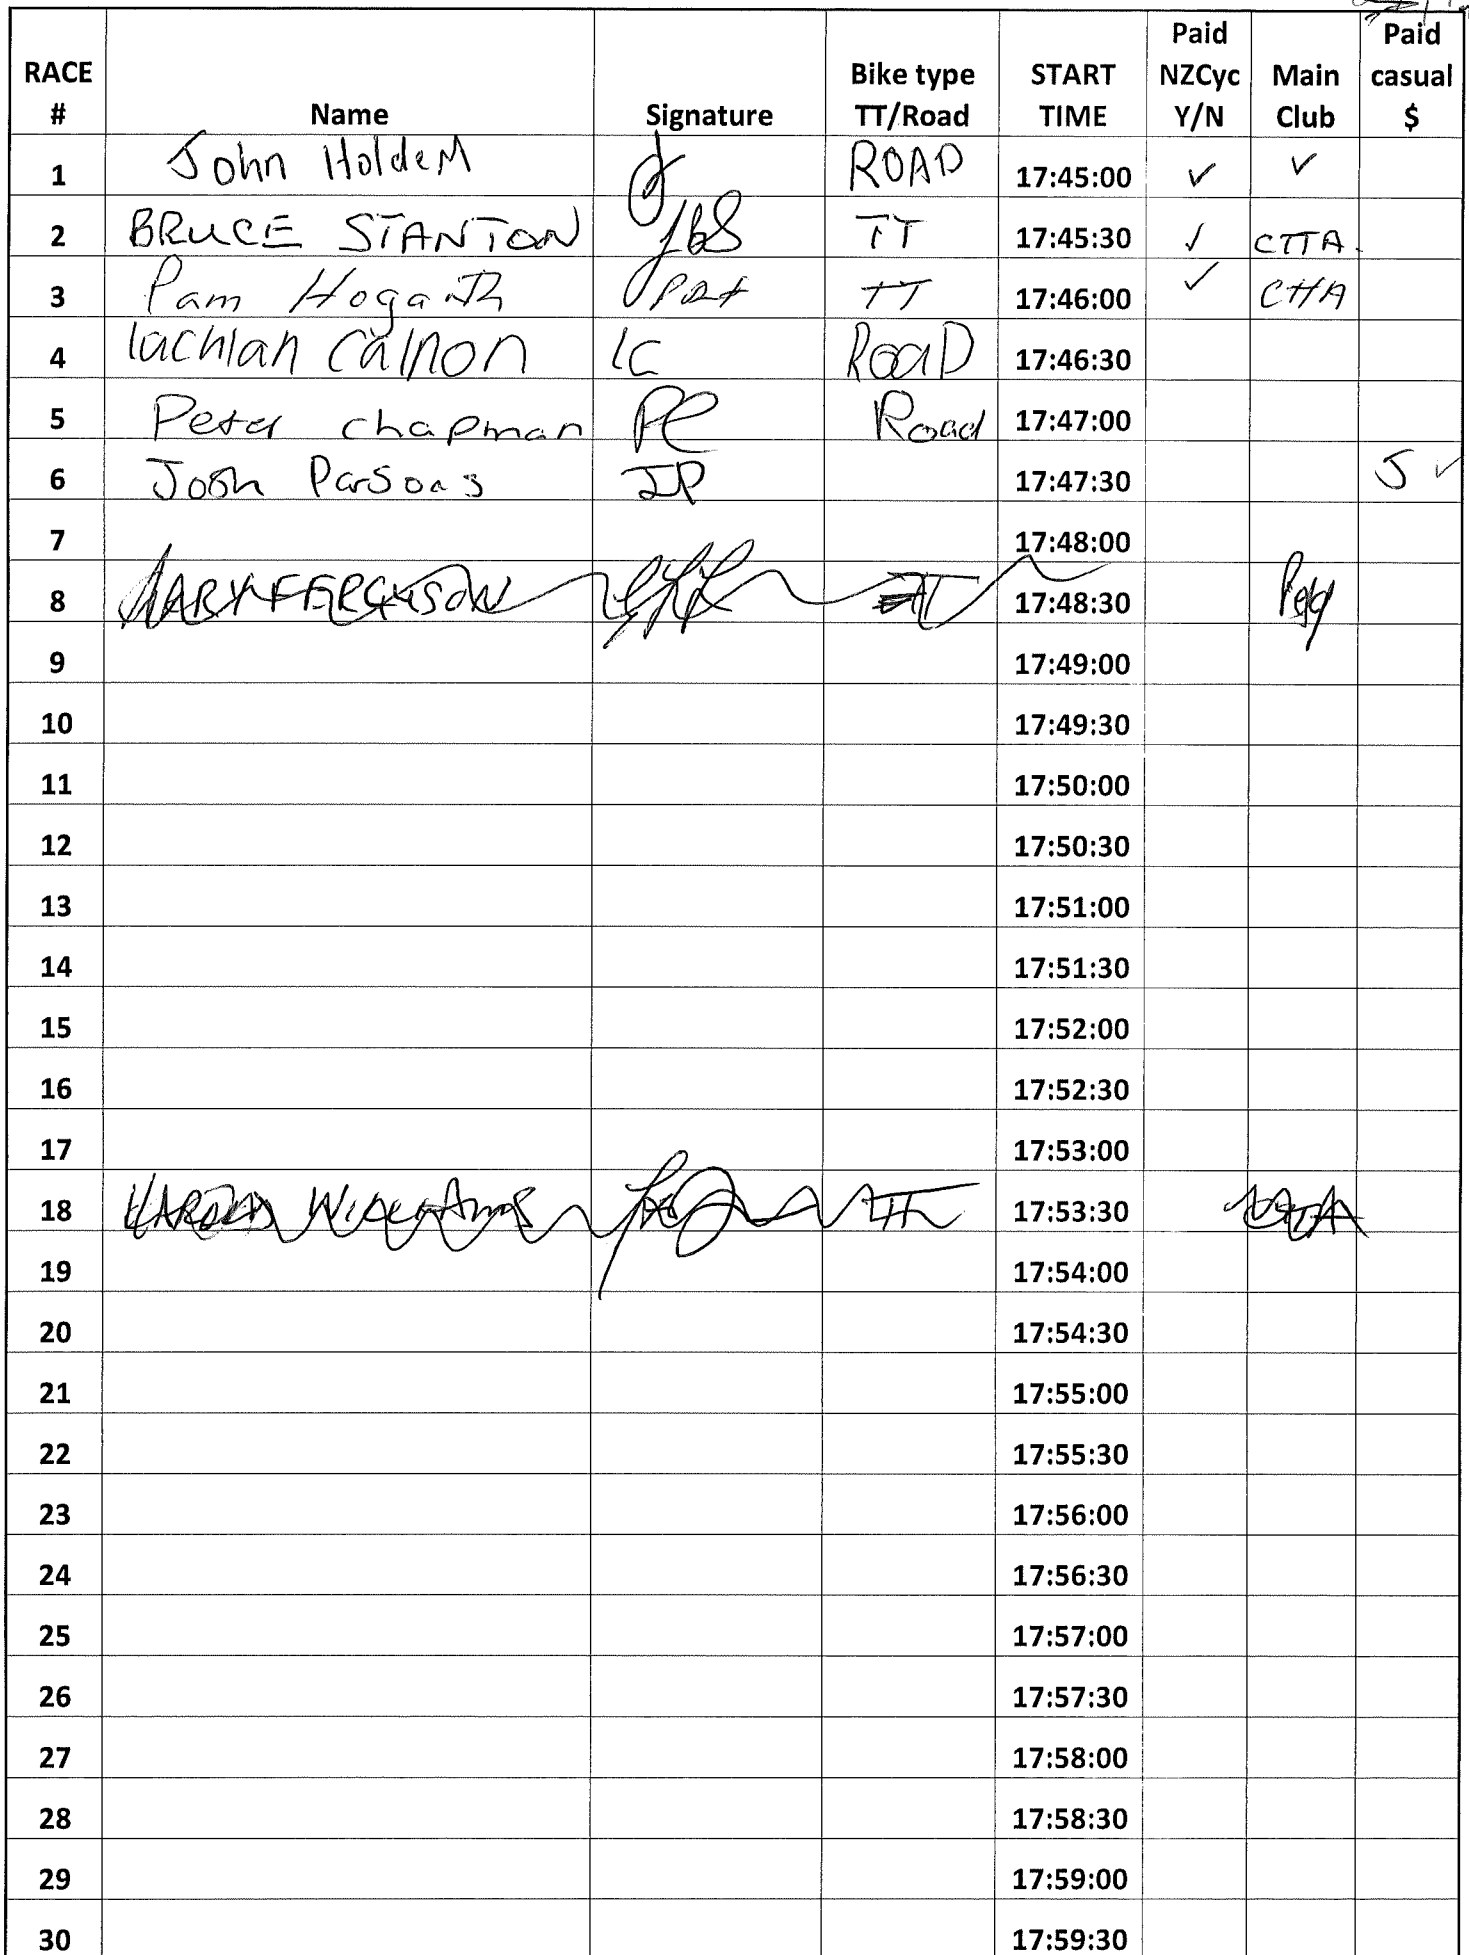 RACE # Name Signature Bike type TT/Road START TIME Paid NZCyc Y/N Main Club Paid casual $
1 John Holdem ROAD 17:45:00 ✓ ✓
2 BRUCE STANTON JBS TT 17:45:30 ✓ CTTA
3 Pam Hogarth TT 17:46:00 ✓ CTTA
4 lachlan Calnon LC RoaD 17:46:30
5 Peter chapman PC Road 17:47:00
6 Josh Parsons JP 17:47:30 J ✓
7 17:48:00
8 FERGUSON TT 17:48:30
9 17:49:00
10 17:49:30
11 17:50:00
12 17:50:30
13 17:51:00
14 17:51:30
15 17:52:00
16 17:52:30
17 17:53:00
18 TT 17:53:30
19 17:54:00
20 17:54:30
21 17:55:00
22 17:55:30
23 17:56:00
24 17:56:30
25 17:57:00
26 17:57:30
27 17:58:00
28 17:58:30
29 17:59:00
30 17:59:30